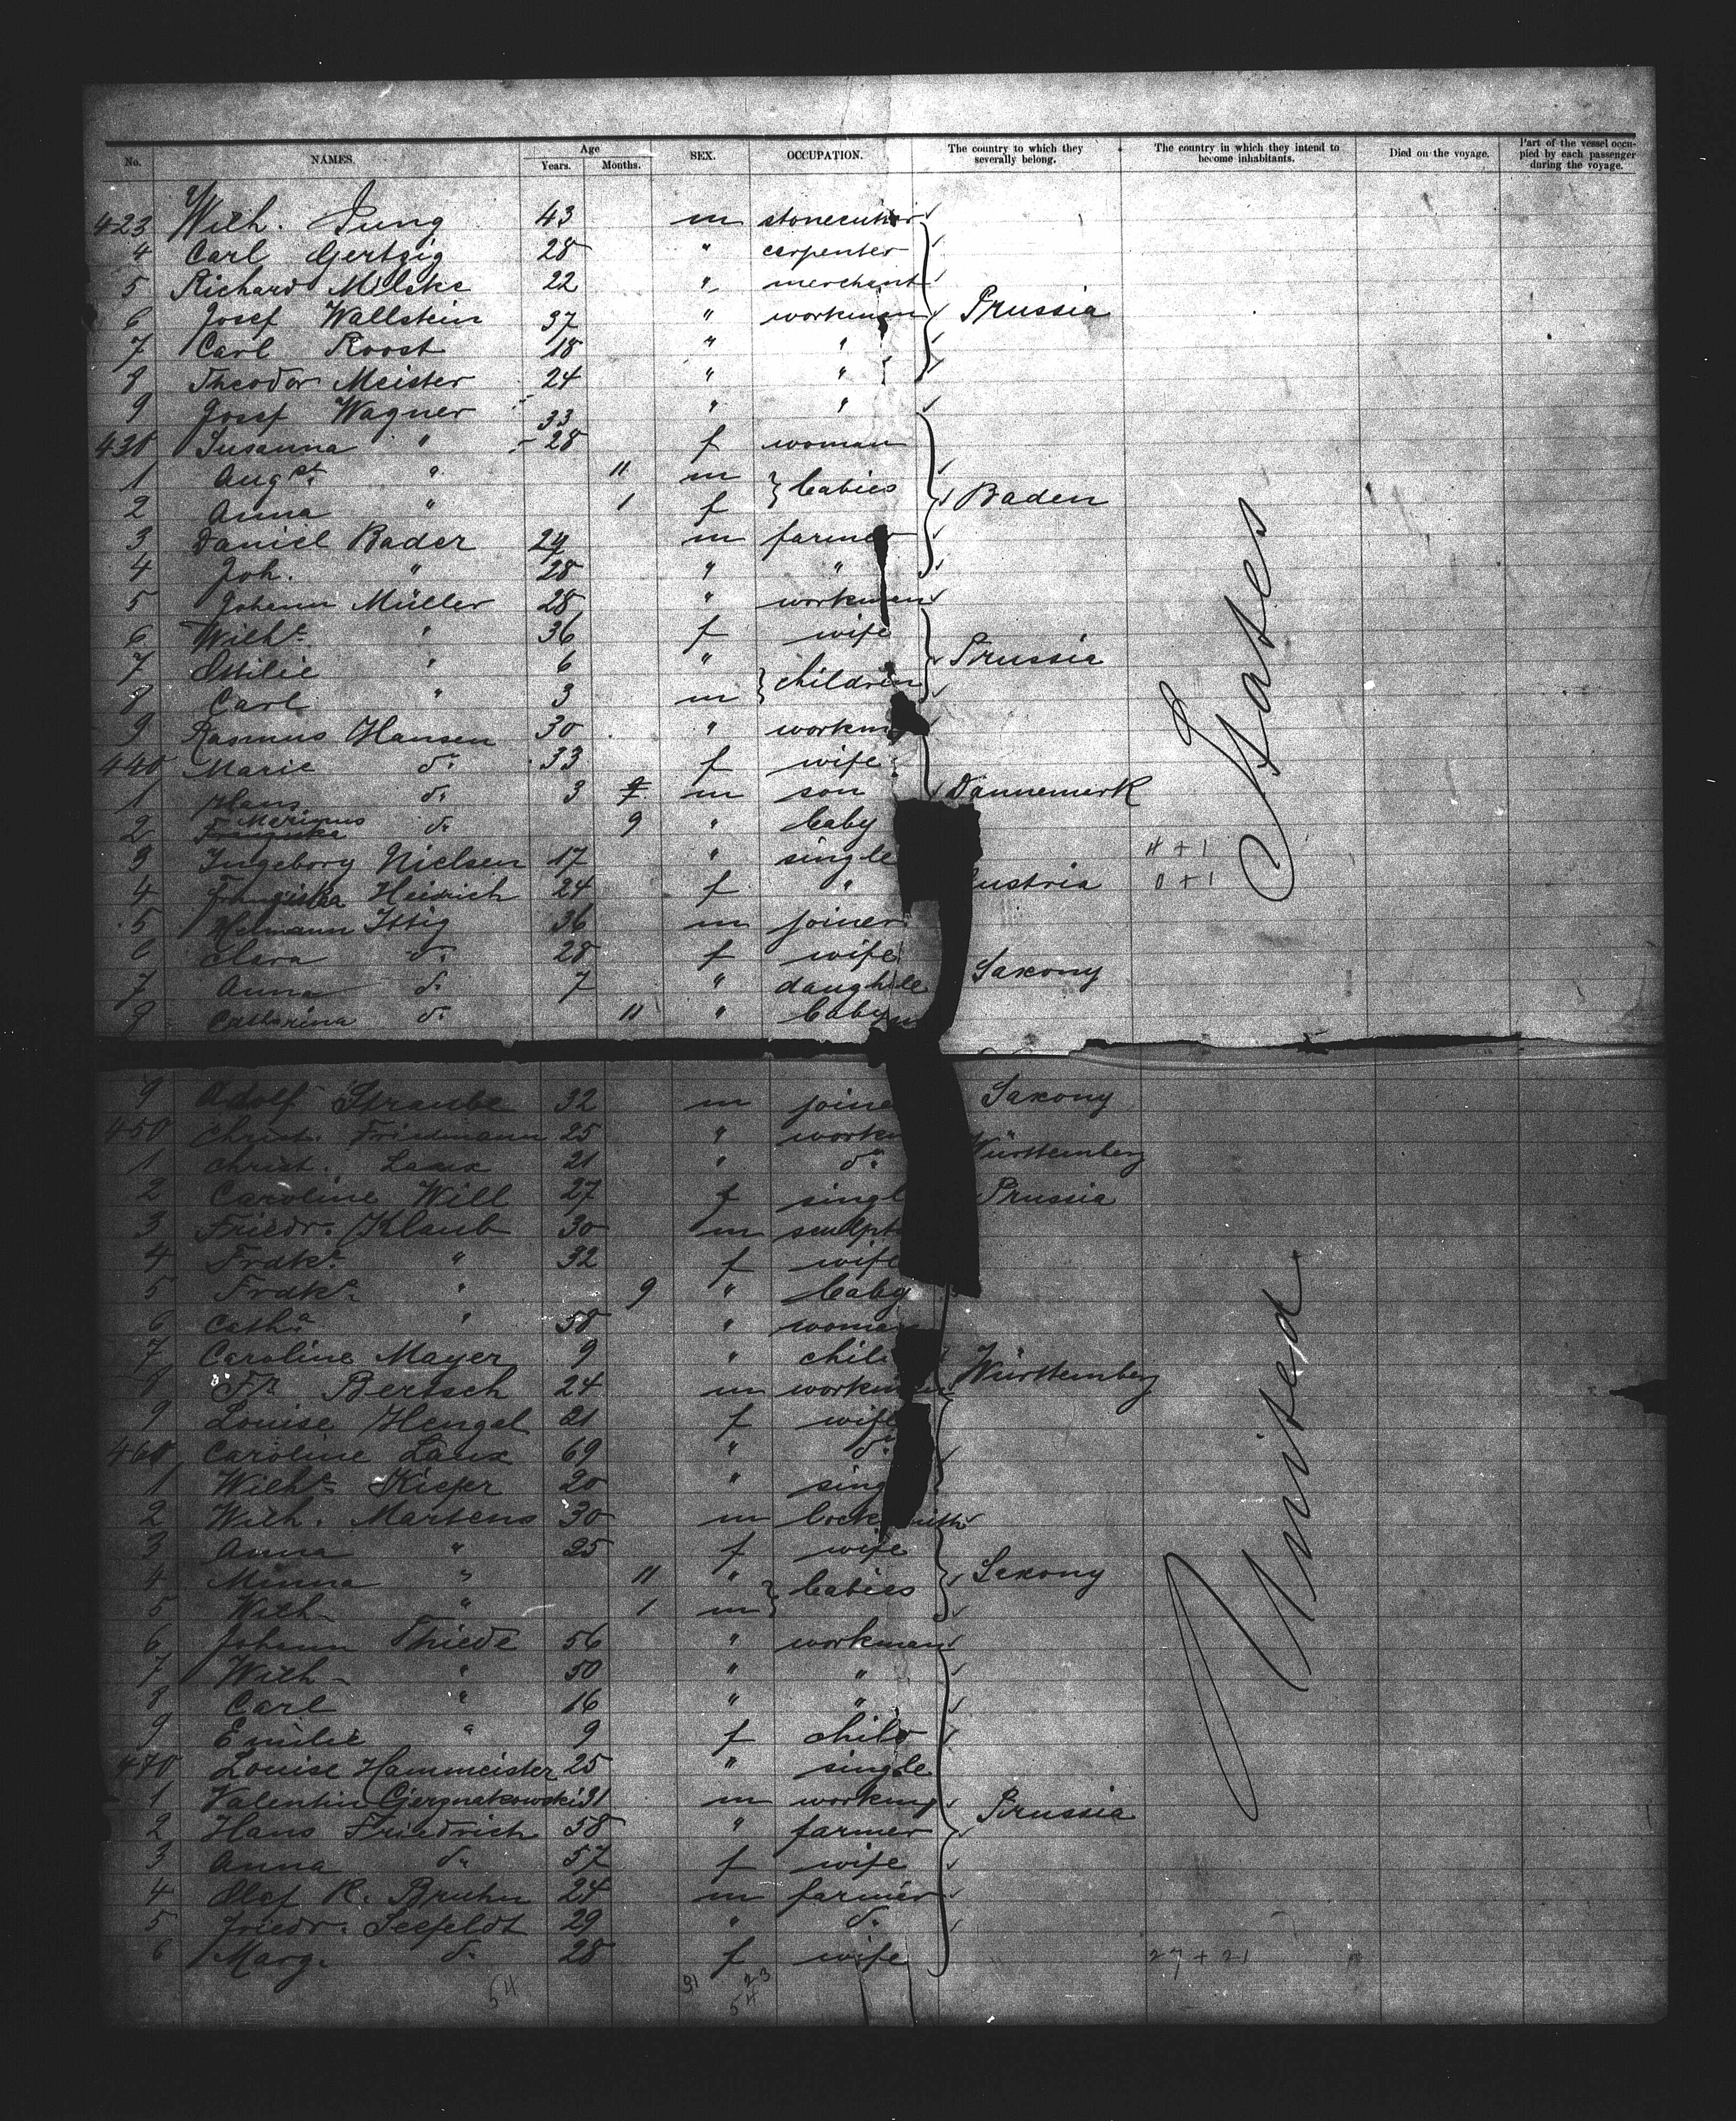 No. NAMES. Age Years. Months. SEX. OCCUPATION. The country to which they severally belong. The country in which they intend to become inhabitants. Died on the voyage. Part of the vessel occupied by each passenger during the voyage.
423 Wilh. Jung 43 m stonecutter
4 Carl Gertzig 28 " carpenter
5 Richard Milske 22 " merchant
6 Josef Wallstein 37 " workman Prussia
7 Carl Roost 18 " "
8 Theodor Meister 24 " "
9 Josef Wagner 33 " "
430 Susanna " 28 f woman
1 Augst " 11 m babies
2 Anna " 1 f Baden
3 Daniel Bader 29 m farmer
4 Joh. " 28 " "
5 Johann Müller 28 " workman
6 Wilhe " 36 f wife
7 Ottilie " 6 " children Prussia
8 Carl " 3 m
9 Rasmus Hansen 30 " workm
440 Marie do 33 f wife
1 Hans do 3 m son Dannemark
2 Marinus do 9 " baby
3 Ingeborg Nielsen 17 " single 4+1
4 Franziska Heinrich 24 f " ustria 0+1
5 Hermann Ittig 36 m joiner
6 Clara do 28 f wife
7 Anna do 7 " daughte Saxony
8 Catharina do 11 " baby
9 Adolf Straube 32 m joine Saxony
450 Christ. Friedmann 25 " workm
1 Christ. Laux 21 " do Württemberg
2 Caroline Will 27 f singl Prussia
3 Friedr. Klaub 30 m sculpt
4 Frdke " 32 f wife
5 Frdke " 9 " baby
6 Catha " 58 " woman
7 Caroline Mayer 9 " chil
8 Fr Bertsch 24 m workman Württemberg
9 Louise Hengel 21 f wife
460 Caroline Laux 69 " do
1 Wilhe Kiefer 20 " sing
2 Wilh. Martens 30 m locksmith
3 Anna " 25 f wife
4 Minna " 11 " babies Saxony
5 Wilh " 1 m
6 Johann Thiede 56 " workman
7 Wilh " 50 " "
8 Carl " 16 " "
9 Emilie " 9 f child
470 Louise Hammeister 25 " single
1 Valentin 31 m workmn Prussia
2 Hans Friedrich 58 " farmer
3 Anna do 57 f wife
4 Olef R. Bruhn 24 m farmer
5 Friedr. Seefeldt 29 " do
6 Marg. do 28 f wife 27+21
54 31 23
54
United States